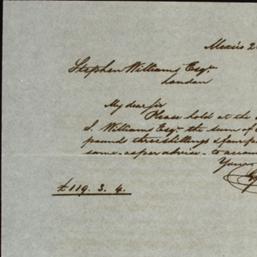 Mexico 2
Stephen Williams Esqr.
London
My dear Sir
Please hold at the
S. Williams Esqr. the sum of
pounds three shillings & four pe
same as per advice to accou
Yours
£119. 3. 4.